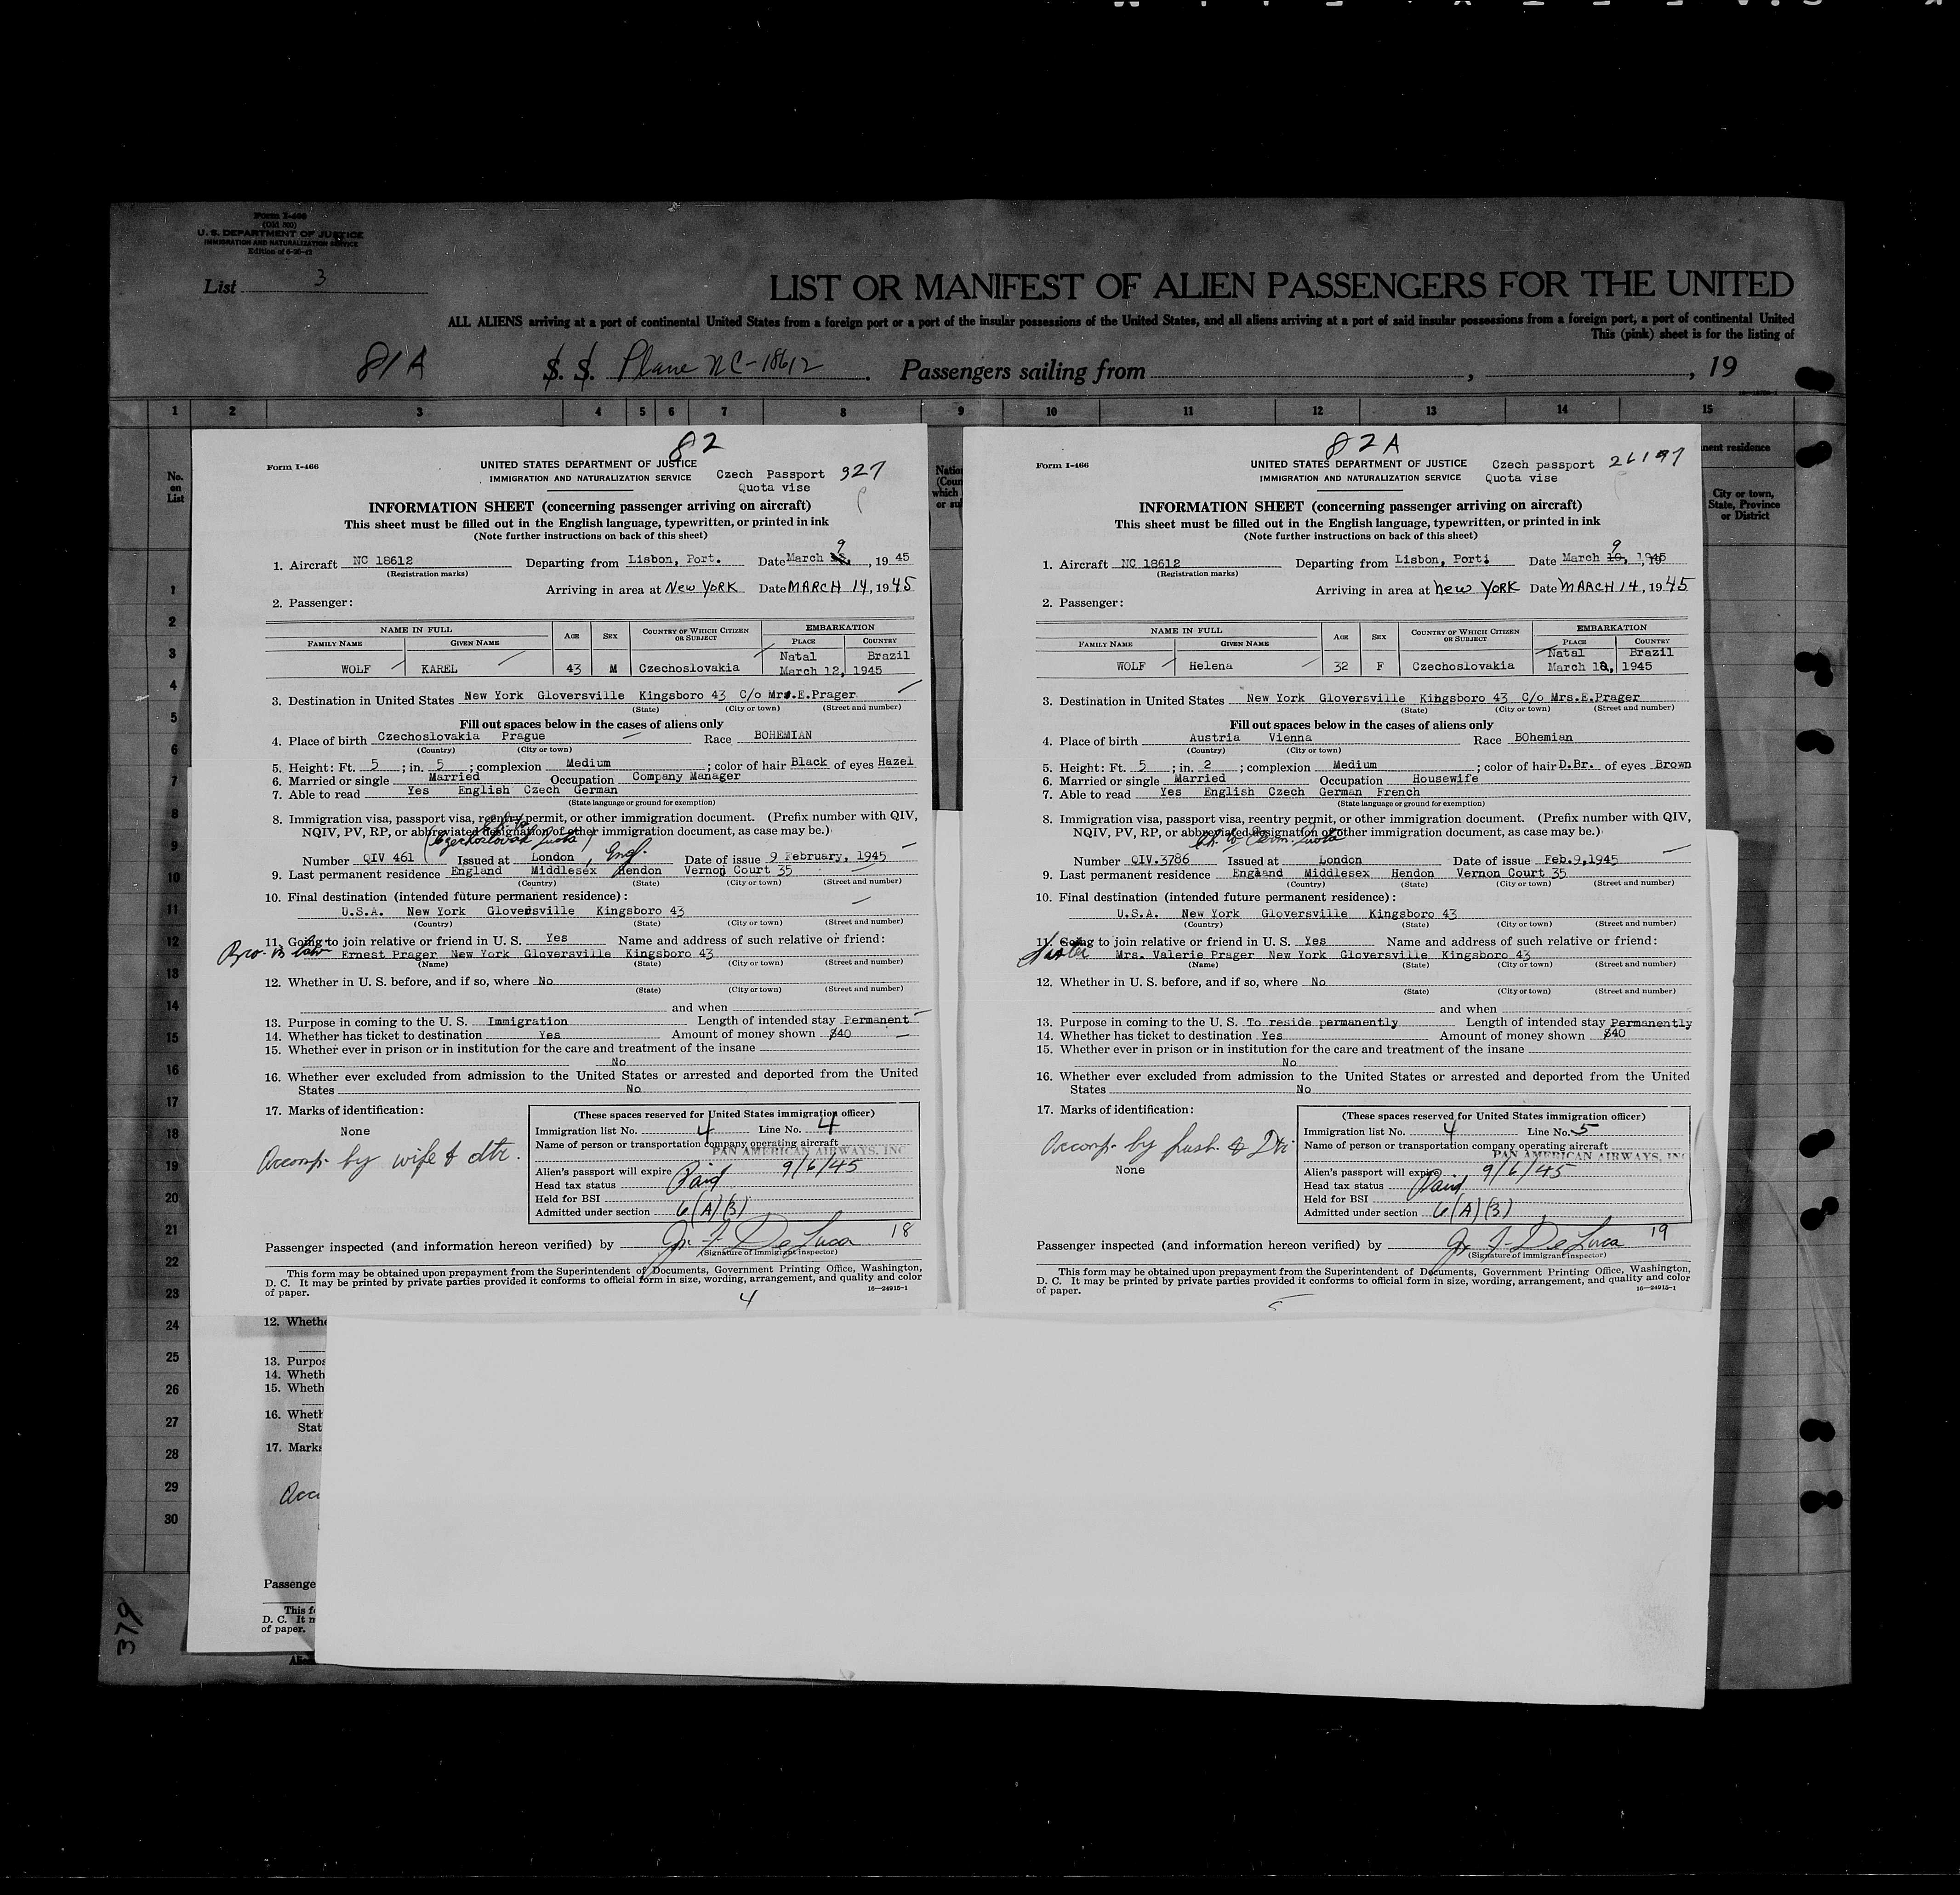 Form I-466
(Old 500)
U. S. DEPARTMENT OF JUSTICE
IMMIGRATION AND NATURALIZATION SERVICE
Edition of 6-20-43
List 3
LIST OR MANIFEST OF ALIEN PASSENGERS FOR THE UNITED
ALL ALIENS arriving at a port of continental United States from a foreign port or a port of the insular possessions of the United States, and all aliens arriving at a port of said insular possessions from a foreign port, a port of continental United
This (pink) sheet is for the listing of
81A S. S. Plane NC-18612. Passengers sailing from , , 19
1 2 3 4 5 6 7 8 9 10 11 12 13 14 15
No. on List
nent residence
City or town, State, Province or District
82
Form I-466
UNITED STATES DEPARTMENT OF JUSTICE
IMMIGRATION AND NATURALIZATION SERVICE
Czech Passport 927
Quota vise
INFORMATION SHEET (concerning passenger arriving on aircraft)
This sheet must be filled out in the English language, typewritten, or printed in ink
(Note further instructions on back of this sheet)
1. Aircraft NC 18612 Departing from Lisbon, Port. Date March 9, 19 45
(Registration marks)
Arriving in area at New YORK Date MARCH 14, 1945
2. Passenger:
NAME IN FULL AGE SEX COUNTRY OF WHICH CITIZEN OR SUBJECT EMBARKATION
FAMILY NAME GIVEN NAME PLACE COUNTRY
WOLF KAREL 43 M Czechoslovakia Natal Brazil
March 12, 1945
3. Destination in United States New York Gloversville Kingsboro 43 C/o Mrs.E.Prager
(State) (City or town) (Street and number)
Fill out spaces below in the cases of aliens only
4. Place of birth Czechoslovakia Prague Race BOHEMIAN
(Country) (City or town)
5. Height: Ft. 5; in. 5; complexion Medium; color of hair Black of eyes Hazel
6. Married or single Married Occupation Company Manager
7. Able to read Yes English Czech German
(State language or ground for exemption)
8. Immigration visa, passport visa, reentry permit, or other immigration document. (Prefix number with QIV,
NQIV, PV, RP, or abbreviated designation of other immigration document, as case may be.)
(Czechoslovak Quota)
Number QIV 461 Issued at London, Engl. Date of issue 9 February, 1945
9. Last permanent residence England Middlesex Hendon Vernon Court 35
(Country) (State) (City or town) (Street and number)
10. Final destination (intended future permanent residence):
U.S.A. New York Gloversville Kingsboro 43
(Country) (State) (City or town) (Street and number)
11. Going to join relative or friend in U. S. Yes Name and address of such relative or friend:
Bro. in law Ernest Prager New York Gloversville Kingsboro 43
(Name) (State) (City or town) (Street and number)
12. Whether in U. S. before, and if so, where No
(State) (City or town) (Street and number)
and when
13. Purpose in coming to the U. S. Immigration Length of intended stay Permanent
14. Whether has ticket to destination Yes Amount of money shown $40
15. Whether ever in prison or in institution for the care and treatment of the insane
No
16. Whether ever excluded from admission to the United States or arrested and deported from the United
States No
17. Marks of identification:
None
Accomp. by wife & dtr.
(These spaces reserved for United States immigration officer)
Immigration list No. 4 Line No. 4
Name of person or transportation company operating aircraft
PAN AMERICAN AIRWAYS, INC
Alien's passport will expire 9/6/45
Head tax status Paid
Held for BSI
Admitted under section 6(A)(3)
18
Passenger inspected (and information hereon verified) by Jr. F. De Luca
(Signature of immigrant inspector)
This form may be obtained upon prepayment from the Superintendent of Documents, Government Printing Office, Washington,
D. C. It may be printed by private parties provided it conforms to official form in size, wording, arrangement, and quality and color
of paper. 16—24915-1
4
82A
Form I-466
UNITED STATES DEPARTMENT OF JUSTICE
IMMIGRATION AND NATURALIZATION SERVICE
Czech passport 26197
Quota vise
INFORMATION SHEET (concerning passenger arriving on aircraft)
This sheet must be filled out in the English language, typewritten, or printed in ink
(Note further instructions on back of this sheet)
1. Aircraft NC 18612 Departing from Lisbon, Port: Date March 9 10, 1945
(Registration marks)
Arriving in area at New YORK Date MARCH 14, 1945
2. Passenger:
NAME IN FULL AGE SEX COUNTRY OF WHICH CITIZEN OR SUBJECT EMBARKATION
FAMILY NAME GIVEN NAME PLACE COUNTRY
WOLF Helena 32 F Czechoslovakia Natal Brazil
March 12, 1945
3. Destination in United States New York Gloversville Kingsboro 43 C/o Mrs.E.Prager
(State) (City or town) (Street and number)
Fill out spaces below in the cases of aliens only
4. Place of birth Austria Vienna Race BOhemian
(Country) (City or town)
5. Height: Ft. 5; in. 2; complexion Medium; color of hair D.Br. of eyes Brown
6. Married or single Married Occupation Housewife
7. Able to read Yes English Czech German French
(State language or ground for exemption)
8. Immigration visa, passport visa, reentry permit, or other immigration document. (Prefix number with QIV,
NQIV, PV, RP, or abbreviated designation of other immigration document, as case may be.)
Quota
Number QIV.3786 Issued at London Date of issue Feb.9,1945
9. Last permanent residence England Middlesex Hendon Vernon Court 35
(Country) (State) (City or town) (Street and number)
10. Final destination (intended future permanent residence):
U.S.A. New York Gloversville Kingsboro 43
(Country) (State) (City or town) (Street and number)
11. Going to join relative or friend in U. S. Yes Name and address of such relative or friend:
Sister Mrs. Valerie Prager New York Gloversville Kingsboro 43
(Name) (State) (City or town) (Street and number)
12. Whether in U. S. before, and if so, where No
(State) (City or town) (Street and number)
and when
13. Purpose in coming to the U. S. To reside permanently Length of intended stay Permanently
14. Whether has ticket to destination Yes Amount of money shown $40
15. Whether ever in prison or in institution for the care and treatment of the insane
No
16. Whether ever excluded from admission to the United States or arrested and deported from the United
States No
17. Marks of identification:
Accomp. by hush. & Dtr.
None
(These spaces reserved for United States immigration officer)
Immigration list No. 4 Line No. 5
Name of person or transportation company operating aircraft
PAN AMERICAN AIRWAYS, INC
Alien's passport will expire 9/6/45
Head tax status Paid
Held for BSI
Admitted under section 6(A)(3)
19
Passenger inspected (and information hereon verified) by Jr. F. De Luca
(Signature of immigrant inspector)
This form may be obtained upon prepayment from the Superintendent of Documents, Government Printing Office, Washington,
D. C. It may be printed by private parties provided it conforms to official form in size, wording, arrangement, and quality and color
of paper. 16—24915-1
5
1
2
3
4
5
6
7
8
9
10
11
12
13
14
15
16
17
18
19
20
21
22
23
24
25
26
27
28
29
30
12. Wheth
13. Purpos
14. Wheth
15. Wheth
16. Wheth
Stat
17. Marks
Acc
Passenge
This f
D. C. It m
of paper.
379